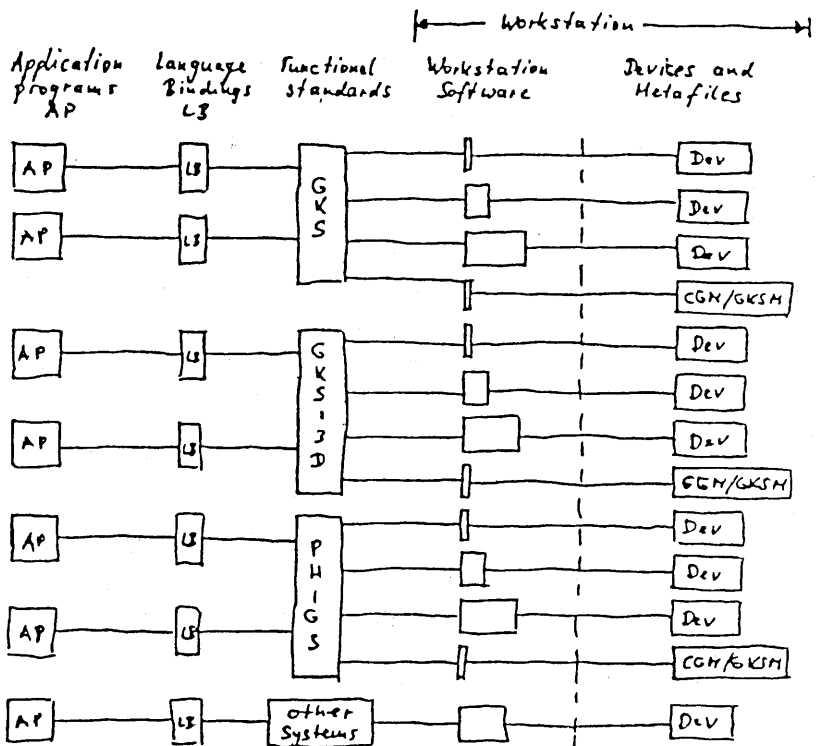 Workstation
Application programs AP
Language Bindings LB
Functional standards
Workstation Software
Devices and Metafiles
AP
LB
GKS
Dev
Dev
AP
LB
Dev
CGM/GKSM
AP
LB
GKS-3D
Dev
Dev
AP
LB
Dev
CGM/GKSM
AP
LB
PHIGS
Dev
Dev
AP
LB
Dev
CGM/GKSM
AP
LB
other Systems
Dev